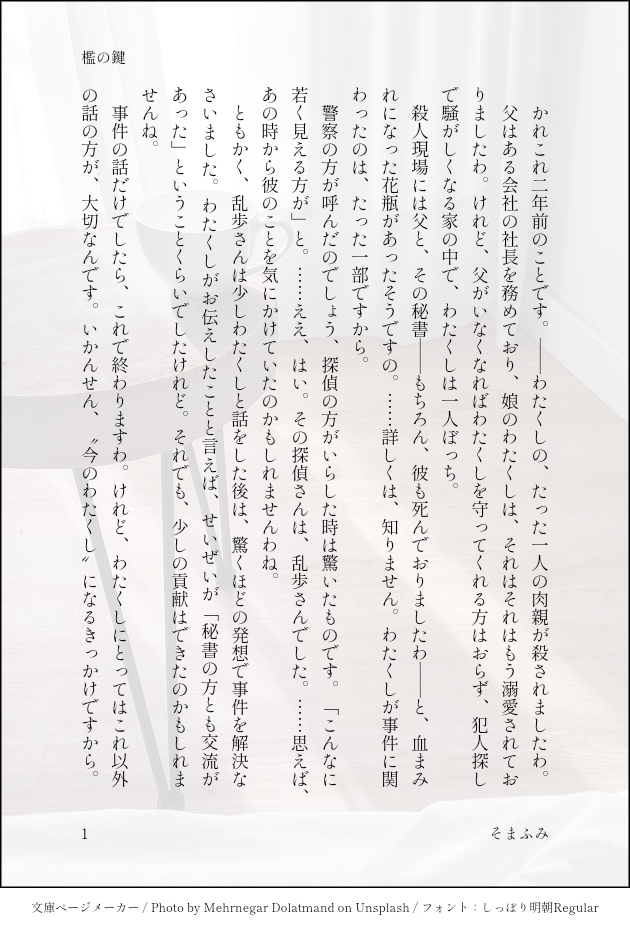 檻の鍵
　かれこれ二年前のことです。――わたくしの、たった一人の肉親が殺されましたわ。
　父はある会社の社長を務めており、娘のわたくしは、それはそれはもう溺愛されてお
りましたわ。けれど、父がいなくなればわたくしを守ってくれる方はおらず、犯人探し
で騒がしくなる家の中で、わたくしは一人ぼっち。
　殺人現場には父と、その秘書――もちろん、彼も死んでおりましたわ――と、血まみ
れになった花瓶があったそうですの。……詳しくは、知りません。わたくしが事件に関
わったのは、たった一部ですから。
　警察の方が呼んだのでしょう、探偵の方がいらした時は驚いたものです。「こんなに
若く見える方が」と。……ええ、はい。その探偵さんは、乱歩さんでした。……思えば、
あの時から彼のことを気にかけていたのかもしれませんわね。
　ともかく、乱歩さんは少しわたくしと話をした後は、驚くほどの発想で事件を解決な
さいました。わたくしがお伝えしたことと言えば、せいぜいが「秘書の方とも交流が
あった」ということくらいでしたけれど。それでも、少しの貢献はできたのかもしれま
せんね。
　事件の話だけでしたら、これで終わりますわ。けれど、わたくしにとってはこれ以外
の話の方が、大切なんです。いかんせん、〝今のわたくし〟になるきっかけですから。
1
そまふみ
文庫ページメーカー / Photo by Mehrnegar Dolatmand on Unsplash / フォント：しっぽり明朝Regular